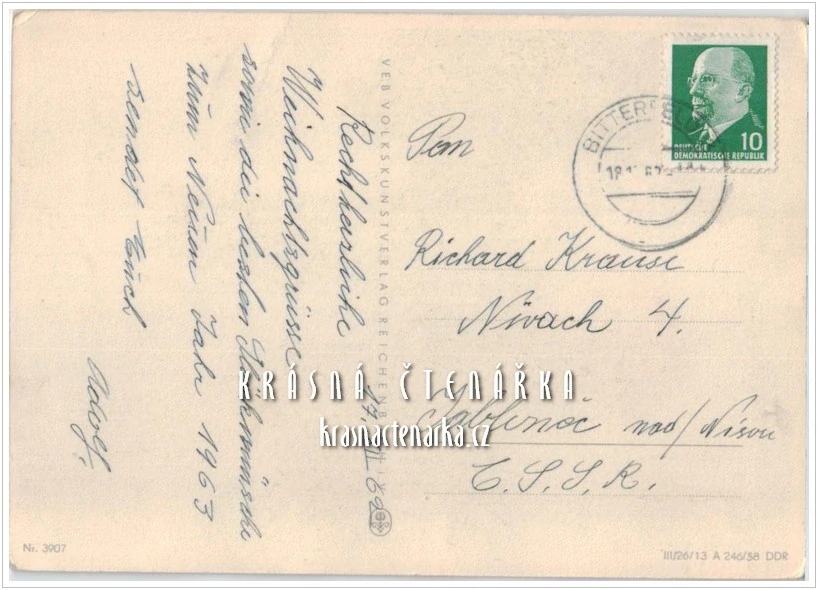 17. XII. 62
Recht herzliche
Weihnachtsgrüsse
sowie die besten Glückwünsche
zum Neuen Jahr 1963
sendet Euch
Adolf.
VEB VOLKSKUNSTVERLAG REICHENB
BITTERFELD
10
DEUTSCHE
DEMOKRATISCHE REPUBLIK
Pan
Richard Krause
Nivach 4.
Jablonec nad/Nisou
Č.S.S.R.
KRÁSNÁ ČTENÁŘKA
krasnactenarka.cz
Nr. 3907
III/26/13 A 246/58 DDR